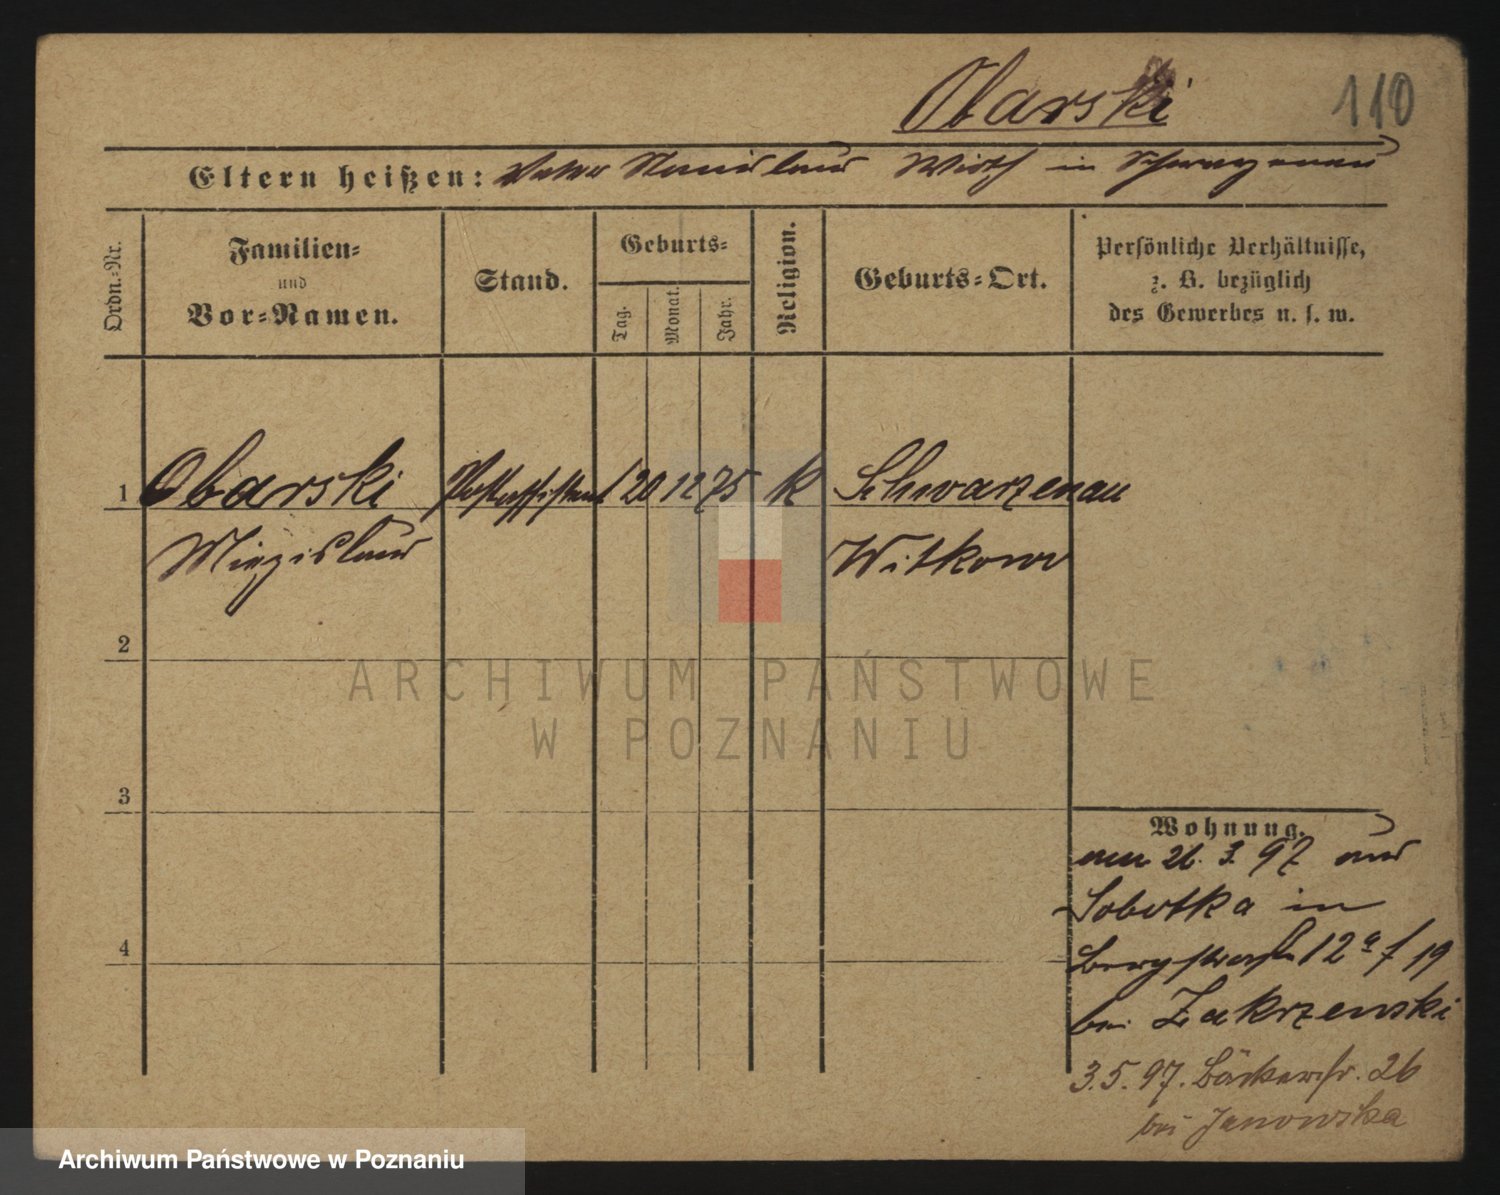 Obarski
110
Eltern heißen: Vater Stanislaus Wirth in Schwarzenau
Ordn.-Nr.
Familien-
und
Vor-Namen.
Stand.
Geburts-
Tag.
Monat.
Jahr.
Religion.
Geburts-Ort.
Persönliche Verhältnisse,
z. B. bezüglich
des Gewerbes u. s. w.
1 Obarski Postassistent 20 12 75 K Schwarzenau
Miezislaus Witkowo
2
3
4
Wohnung.
am 26. 3. 97 aus
Sobotka in
Bergstraße 12a f 19
bei Zakrzewski
3.5.97. Bäckerstr. 26
bei Janowska
ARCHIWUM PAŃSTWOWE
W POZNANIU
Archiwum Państwowe w Poznaniu